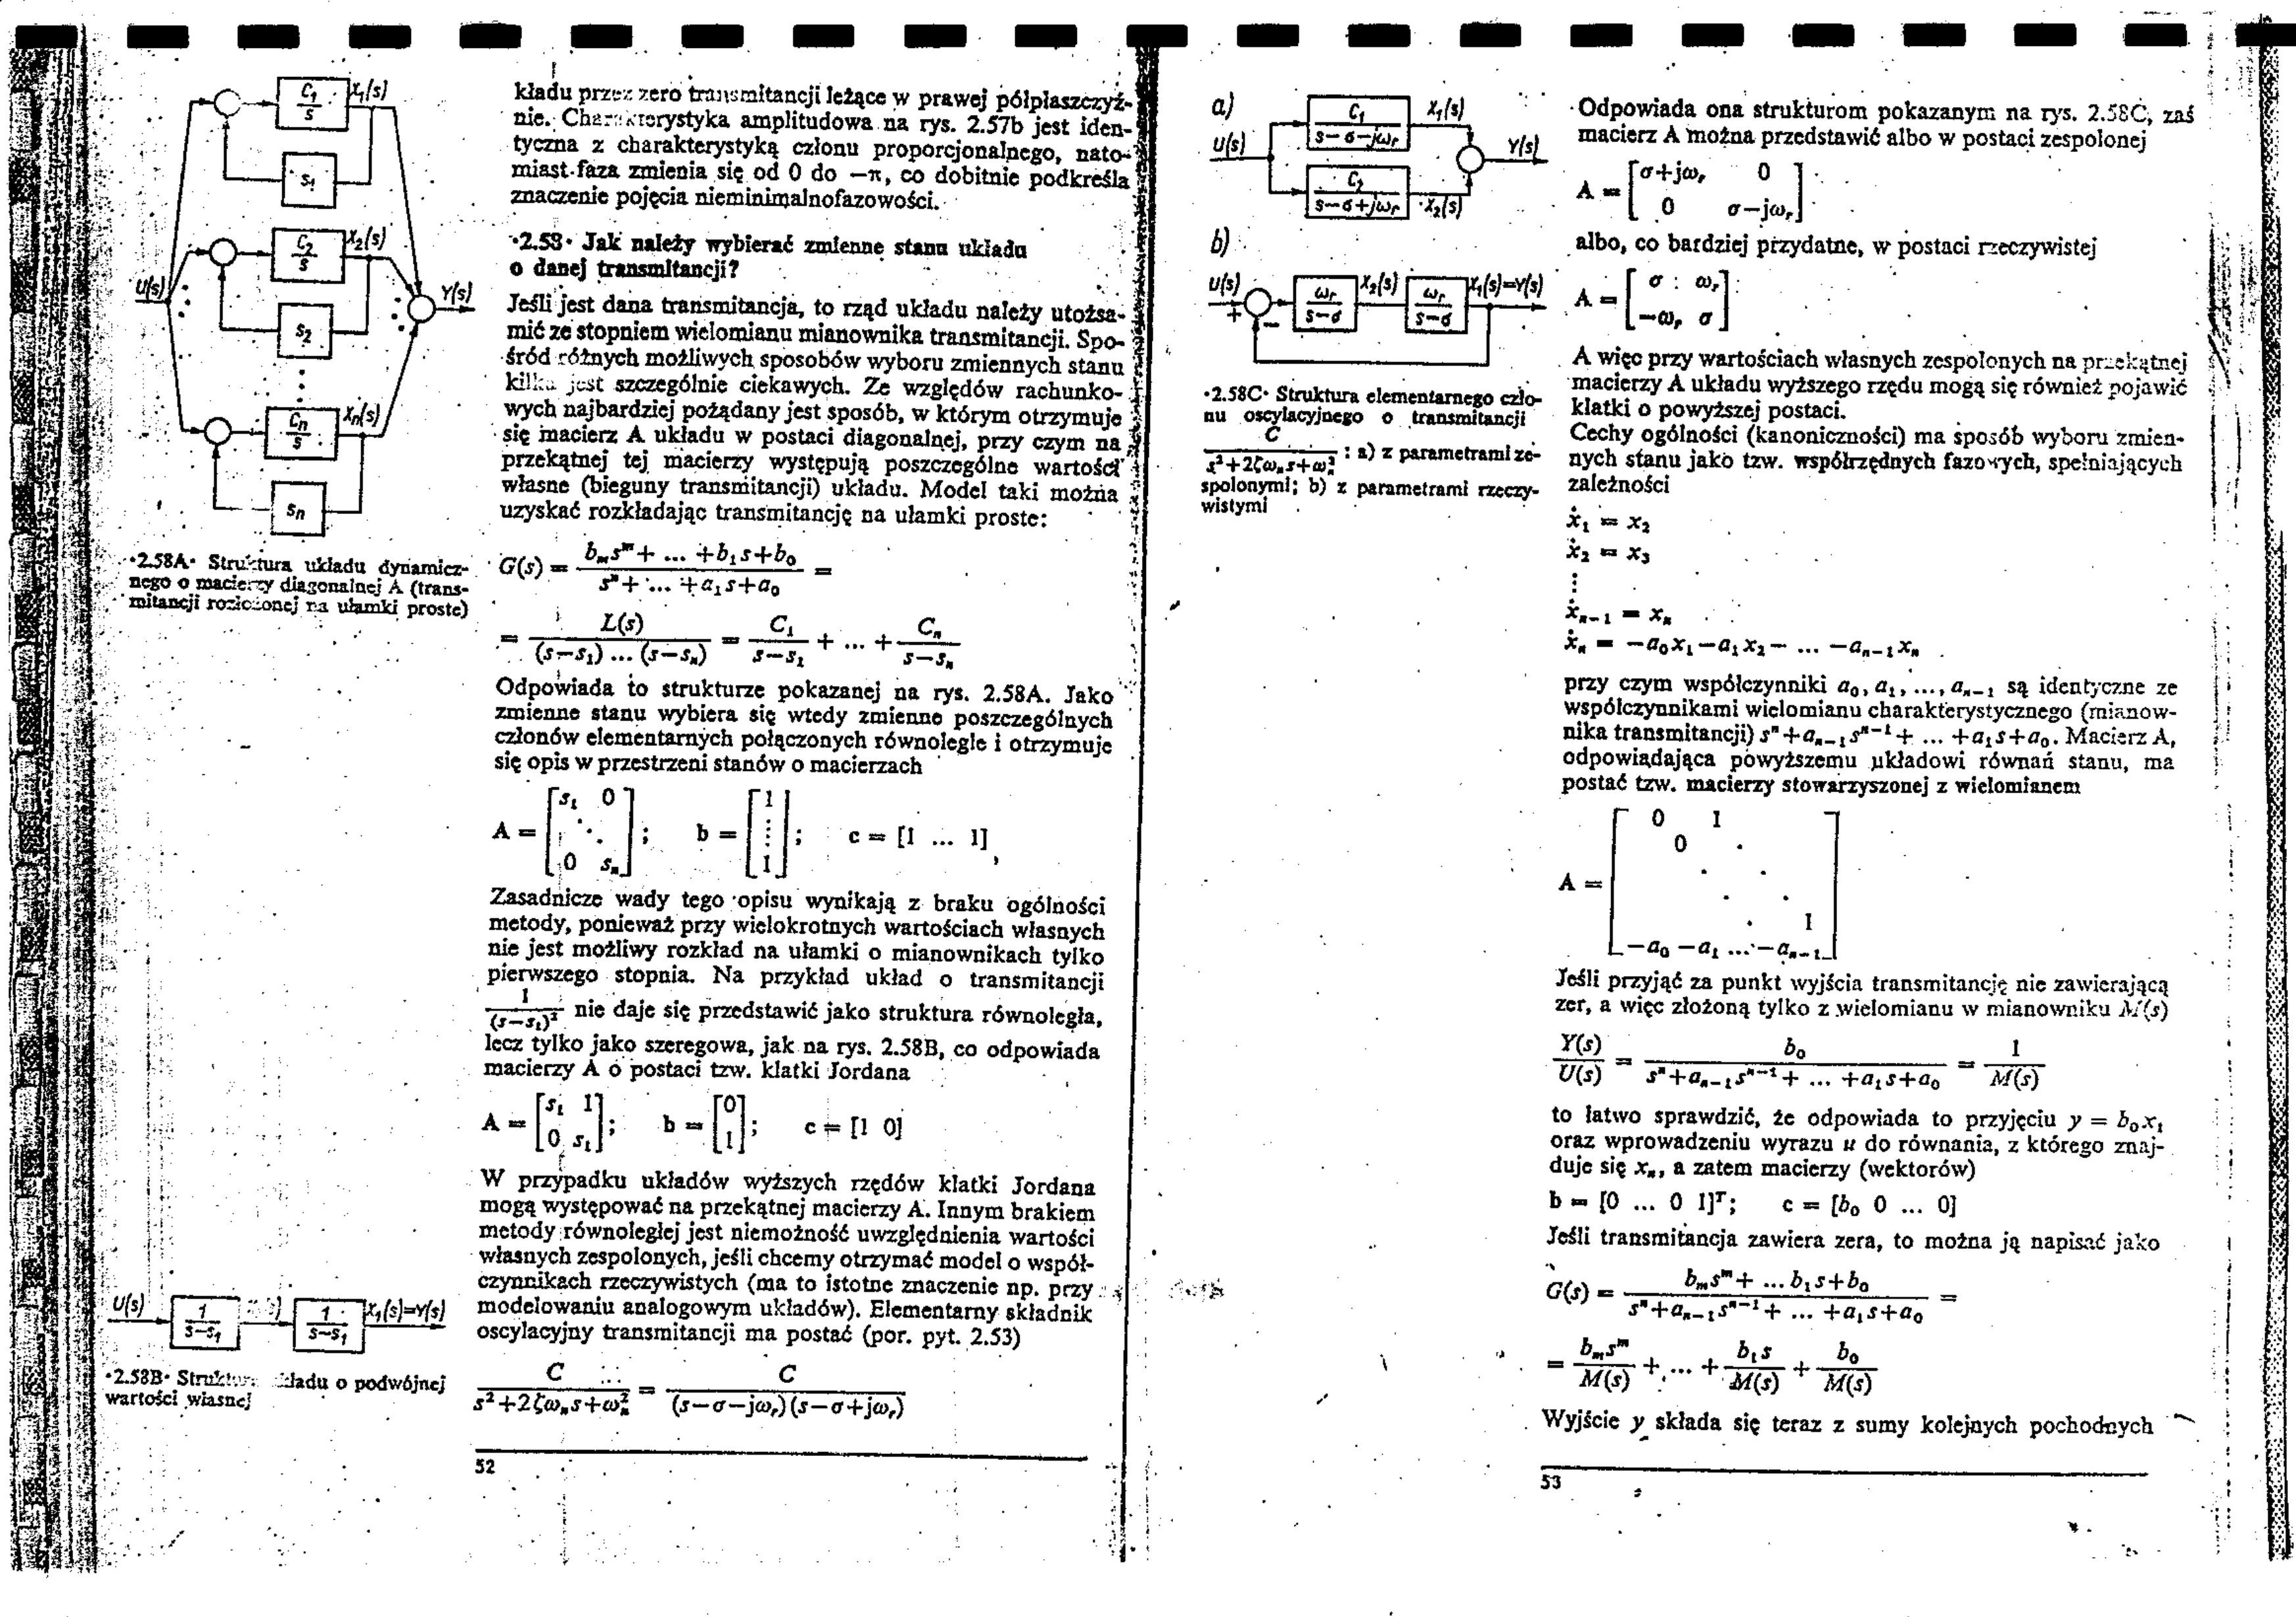 C₁
s
X₁(s)
s₁
C₂
s
X₂(s)
U(s)
Y(s)
s₂
Cₙ
s
Xₙ(s)
sₙ
•2.58A• Struktura układu dynamicz-
nego o macierzy diagonalnej A (trans-
mitancji rozłożonej na ułamki proste)
U(s)
1
s−s₁
1
s−s₁
X₁(s)=Y(s)
•2.58B• Struktura układu o podwójnej
wartości własnej
kładu przez zero transmitancji leżące w prawej półpłaszczyź-
nie. Charakterystyka amplitudowa na rys. 2.57b jest iden-
tyczna z charakterystyką członu proporcjonalnego, nato-
miast faza zmienia się od 0 do −π, co dobitnie podkreśla
znaczenie pojęcia nieminimalnofazowości.
•2.58• Jak należy wybierać zmienne stanu układu
o danej transmitancji?
Jeśli jest dana transmitancja, to rząd układu należy utożsa-
mić ze stopniem wielomianu mianownika transmitancji. Spo-
śród różnych możliwych sposobów wyboru zmiennych stanu
kilka jest szczególnie ciekawych. Ze względów rachunko-
wych najbardziej pożądany jest sposób, w którym otrzymuje
się macierz A układu w postaci diagonalnej, przy czym na
przekątnej tej macierzy występują poszczególne wartości
własne (bieguny transmitancji) układu. Model taki można
uzyskać rozkładając transmitancję na ułamki proste:
G(s) = (bₘsᵐ+ ... +b₁s+b₀)/(sⁿ+ ... +a₁s+a₀) =
= L(s)/((s−s₁) ... (s−sₙ)) = C₁/(s−s₁) + ... + Cₙ/(s−sₙ)
Odpowiada to strukturze pokazanej na rys. 2.58A. Jako
zmienne stanu wybiera się wtedy zmienne poszczególnych
członów elementarnych połączonych równolegle i otrzymuje
się opis w przestrzeni stanów o macierzach
A = [s₁ 0 ⋱ 0 sₙ]; b = [1 ⋮ 1]; c = [1 ... 1],
Zasadnicze wady tego opisu wynikają z braku ogólności
metody, ponieważ przy wielokrotnych wartościach własnych
nie jest możliwy rozkład na ułamki o mianownikach tylko
pierwszego stopnia. Na przykład układ o transmitancji
1/(s−s₁)² nie daje się przedstawić jako struktura równoległa,
lecz tylko jako szeregowa, jak na rys. 2.58B, co odpowiada
macierzy A o postaci tzw. klatki Jordana
A = [s₁ 1 0 s₁]; b = [0 1]; c = [1 0]
W przypadku układów wyższych rzędów klatki Jordana
mogą występować na przekątnej macierzy A. Innym brakiem
metody równoległej jest niemożność uwzględnienia wartości
własnych zespolonych, jeśli chcemy otrzymać model o współ-
czynnikach rzeczywistych (ma to istotne znaczenie np. przy
modelowaniu analogowym układów). Elementarny składnik
oscylacyjny transmitancji ma postać (por. pyt. 2.53)
C/(s²+2ζωₙs+ωₙ²) = C/((s−σ−jωᵣ)(s−σ+jωᵣ))
52
a)
U(s)
C₁
s−σ−jωᵣ
X₁(s)
Y(s)
C₂
s−σ+jωᵣ
X₂(s)
b)
U(s)
+
−
ωᵣ
s−σ
X₂(s)
ωᵣ
s−σ
X₁(s)=Y(s)
•2.58C• Struktura elementarnego czło-
nu oscylacyjnego o transmitancji
C/(s²+2ζωₙs+ωₙ²) : a) z parametrami ze-
spolonymi; b) z parametrami rzeczy-
wistymi
Odpowiada ona strukturom pokazanym na rys. 2.58C, zaś
macierz A można przedstawić albo w postaci zespolonej
A = [σ+jωᵣ 0 0 σ−jωᵣ]
albo, co bardziej przydatne, w postaci rzeczywistej
A = [σ ωᵣ −ωᵣ σ]
A więc przy wartościach własnych zespolonych na przekątnej
macierzy A układu wyższego rzędu mogą się również pojawić
klatki o powyższej postaci.
Cechy ogólności (kanoniczności) ma sposób wyboru zmien-
nych stanu jako tzw. współrzędnych fazowych, spełniających
zależności
ẋ₁ = x₂
ẋ₂ = x₃
⋮
ẋₙ₋₁ = xₙ
ẋₙ = −a₀x₁−a₁x₂− ... −aₙ₋₁xₙ
przy czym współczynniki a₀, a₁, ..., aₙ₋₁ są identyczne ze
współczynnikami wielomianu charakterystycznego (mianow-
nika transmitancji) sⁿ+aₙ₋₁sⁿ⁻¹+ ... +a₁s+a₀. Macierz A,
odpowiadająca powyższemu układowi równań stanu, ma
postać tzw. macierzy stowarzyszonej z wielomianem
0 1
0 .
. .
A =
. .
. 1
−a₀ −a₁ ... −aₙ₋₁
Jeśli przyjąć za punkt wyjścia transmitancję nie zawierającą
zer, a więc złożoną tylko z wielomianu w mianowniku M(s)
Y(s)/U(s) = b₀/(sⁿ+aₙ₋₁sⁿ⁻¹+ ... +a₁s+a₀) = 1/M(s)
to łatwo sprawdzić, że odpowiada to przyjęciu y = b₀x₁
oraz wprowadzeniu wyrazu u do równania, z którego znaj-
duje się xₙ, a zatem macierzy (wektorów)
b = [0 ... 0 1]ᵀ; c = [b₀ 0 ... 0]
Jeśli transmitancja zawiera zera, to można ją napisać jako
G(s) = (bₘsᵐ+ ... b₁s+b₀)/(sⁿ+aₙ₋₁sⁿ⁻¹+ ... +a₁s+a₀) =
= bₘsᵐ/M(s) + ... + b₁s/M(s) + b₀/M(s)
Wyjście y składa się teraz z sumy kolejnych pochodnych
53